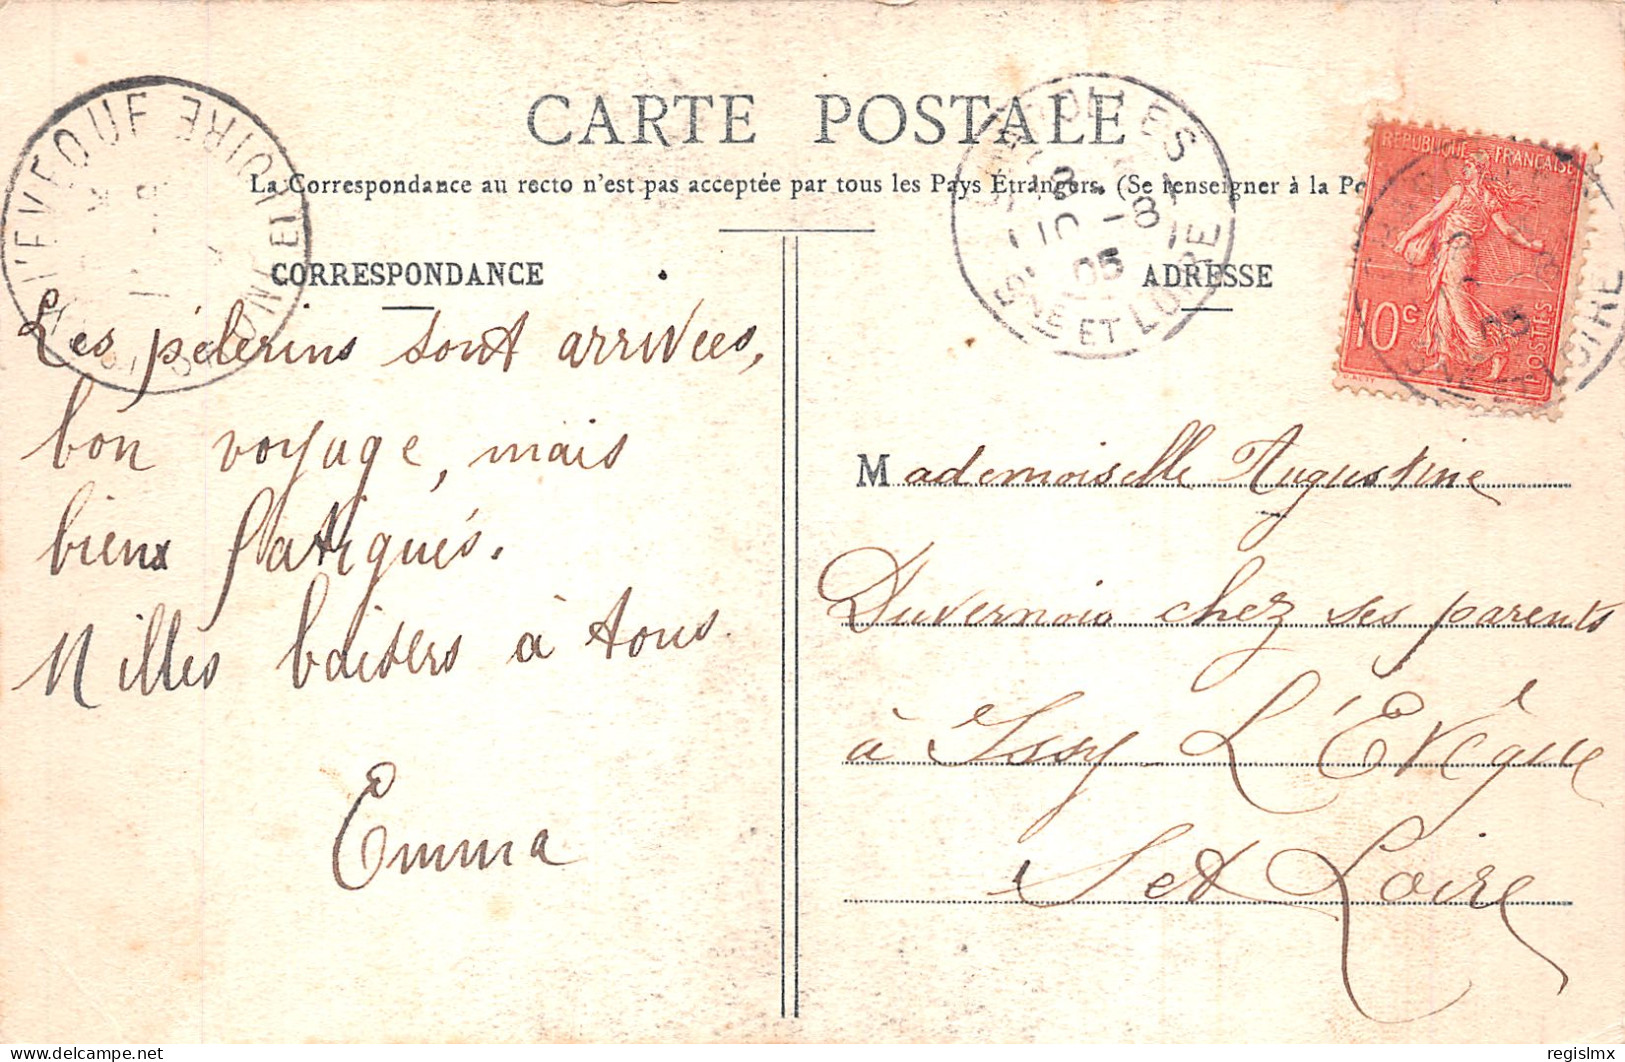 CARTE POSTALE
La Correspondance au recto n'est pas acceptée par tous les Pays Étrangers. (Se renseigner à la Po
CORRESPONDANCE
ADRESSE
REPUBLIQUE FRANÇAISE
10c
POSTES
L'EVEQUE
LOIRE
10 -8
05
ET LOIRE
05
LOIRE
Les pélerins sont arrivées,
bon voyage, mais
bien fatigués.
Milles baisers à tous.
Emma
Mademoiselle Augustine
Duvernois chez ses parents
à Issy L'Evêque
S et Loire
delcampe.net
regislmx